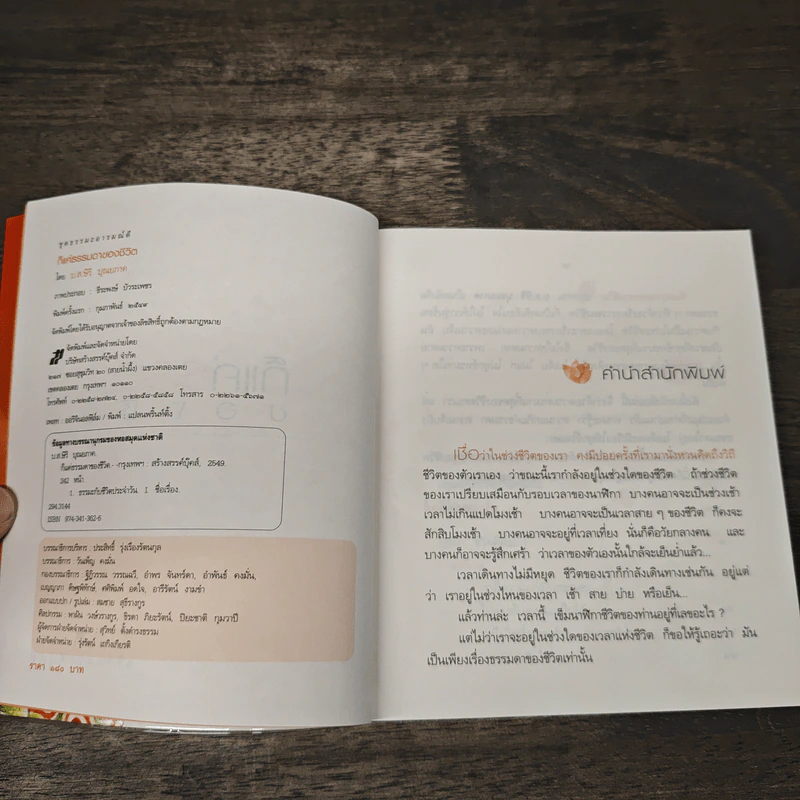 ชุดธรรมะอารมณ์ดี
ก็แค่ธรรมดาของชีวิต
โดย บ.ส.ษิริ บุณยภาค
ภาพประกอบ : ธีระพงษ์ บัวระเพชร
พิมพ์ครั้งแรก : กุมภาพันธ์ ๒๕๔๙
จัดพิมพ์โดยได้รับอนุญาตจากเจ้าของลิขสิทธิ์ถูกต้องตามกฎหมาย
จัดพิมพ์และจัดจำหน่ายโดย
บริษัทสร้างสรรค์บุ๊คส์ จำกัด
๒๑๗ ซอยสุขุมวิท ๒๐ (สายน้ำผึ้ง) แขวงคลองเตย
เขตคลองเตย กรุงเทพฯ ๑๐๑๑๐
โทรศัพท์ ๐-๒๒๕๘-๒๗๒๔, ๐-๒๒๕๘-๕๘๕๘ โทรสาร ๐-๒๒๖๑-๕๐๗๑
เพลท : ออริจินอลฟิล์ม / พิมพ์ : แปลนพริ้นท์ติ้ง
ข้อมูลทางบรรณานุกรมของหอสมุดแห่งชาติ
บ.ส.ษิริ บุณยภาค.
ก็แค่ธรรมดาของชีวิต.-กรุงเทพฯ : สร้างสรรค์บุ๊คส์, 2549.
242 หน้า.
1. ธรรมะกับชีวิตประจำวัน. I. ชื่อเรื่อง.
294.3144
ISBN 974-341-362-6
บรรณาธิการบริหาร : ประสิทธิ์ รุ่งเรืองรัตนกุล
บรรณาธิการ : วันเพ็ญ คงมั่น
กองบรรณาธิการ : ฐิฏิวรรณ วรรณวี, อำพร จันทร์ดา, อำพันธ์ คงมั่น,
เบญญาภา ดิษฐพิทักษ์, ศศิพิมพ์ อดใจ, อารีรัตน์ งามขำ
ออกแบบปก / รูปเล่ม : สมชาย สุธีรางกูร
ศิลปกรรม : พามิน วงษ์วรางกูร, ธิรดา ภิยะรัตน์, ปิยะชาติ กุมวาปี
ผู้จัดการฝ่ายจัดจำหน่าย : สุวิทย์ ตั้งดำรงธรรม
ฝ่ายจัดจำหน่าย : รุ่งรัตน์ เถกิงเกียรติ
ราคา ๑๘๐ บาท
คำนำสำนักพิมพ์
เชื่อว่าในช่วงชีวิตของเรา คงมีบ่อยครั้งที่เรามานั่งหวนคิดถึงวิถี
ชีวิตของตัวเราเอง ว่าขณะนี้เรากำลังอยู่ในช่วงใดของชีวิต ถ้าช่วงชีวิต
ของเราเปรียบเสมือนกับรอบเวลาของนาฬิกา บางคนอาจจะเป็นช่วงเช้า
เวลาไม่เกินแปดโมงเช้า บางคนอาจจะเป็นเวลาสาย ๆ ของชีวิต ก็คงจะ
สักสิบโมงเช้า บางคนอาจจะอยู่ที่เวลาเที่ยง นั่นก็คือวัยกลางคน และ
บางคนก็อาจจะรู้สึกเศร้า ว่าเวลาของตัวเองนั้นใกล้จะเย็นย่ำแล้ว...
เวลาเดินทางไม่มีหยุด ชีวิตของเราก็กำลังเดินทางเช่นกัน อยู่แต่
ว่า เราอยู่ในช่วงไหนของเวลา เช้า สาย บ่าย หรือเย็น...
แล้วท่านล่ะ เวลานี้ เข็มนาฬิกาชีวิตของท่านอยู่ที่เลขอะไร ?
แต่ไม่ว่าเราจะอยู่ในช่วงใดของเวลาแห่งชีวิต ก็ขอให้รู้เถอะว่า มัน
เป็นเพียงเรื่องธรรมดาของชีวิตเท่านั้น